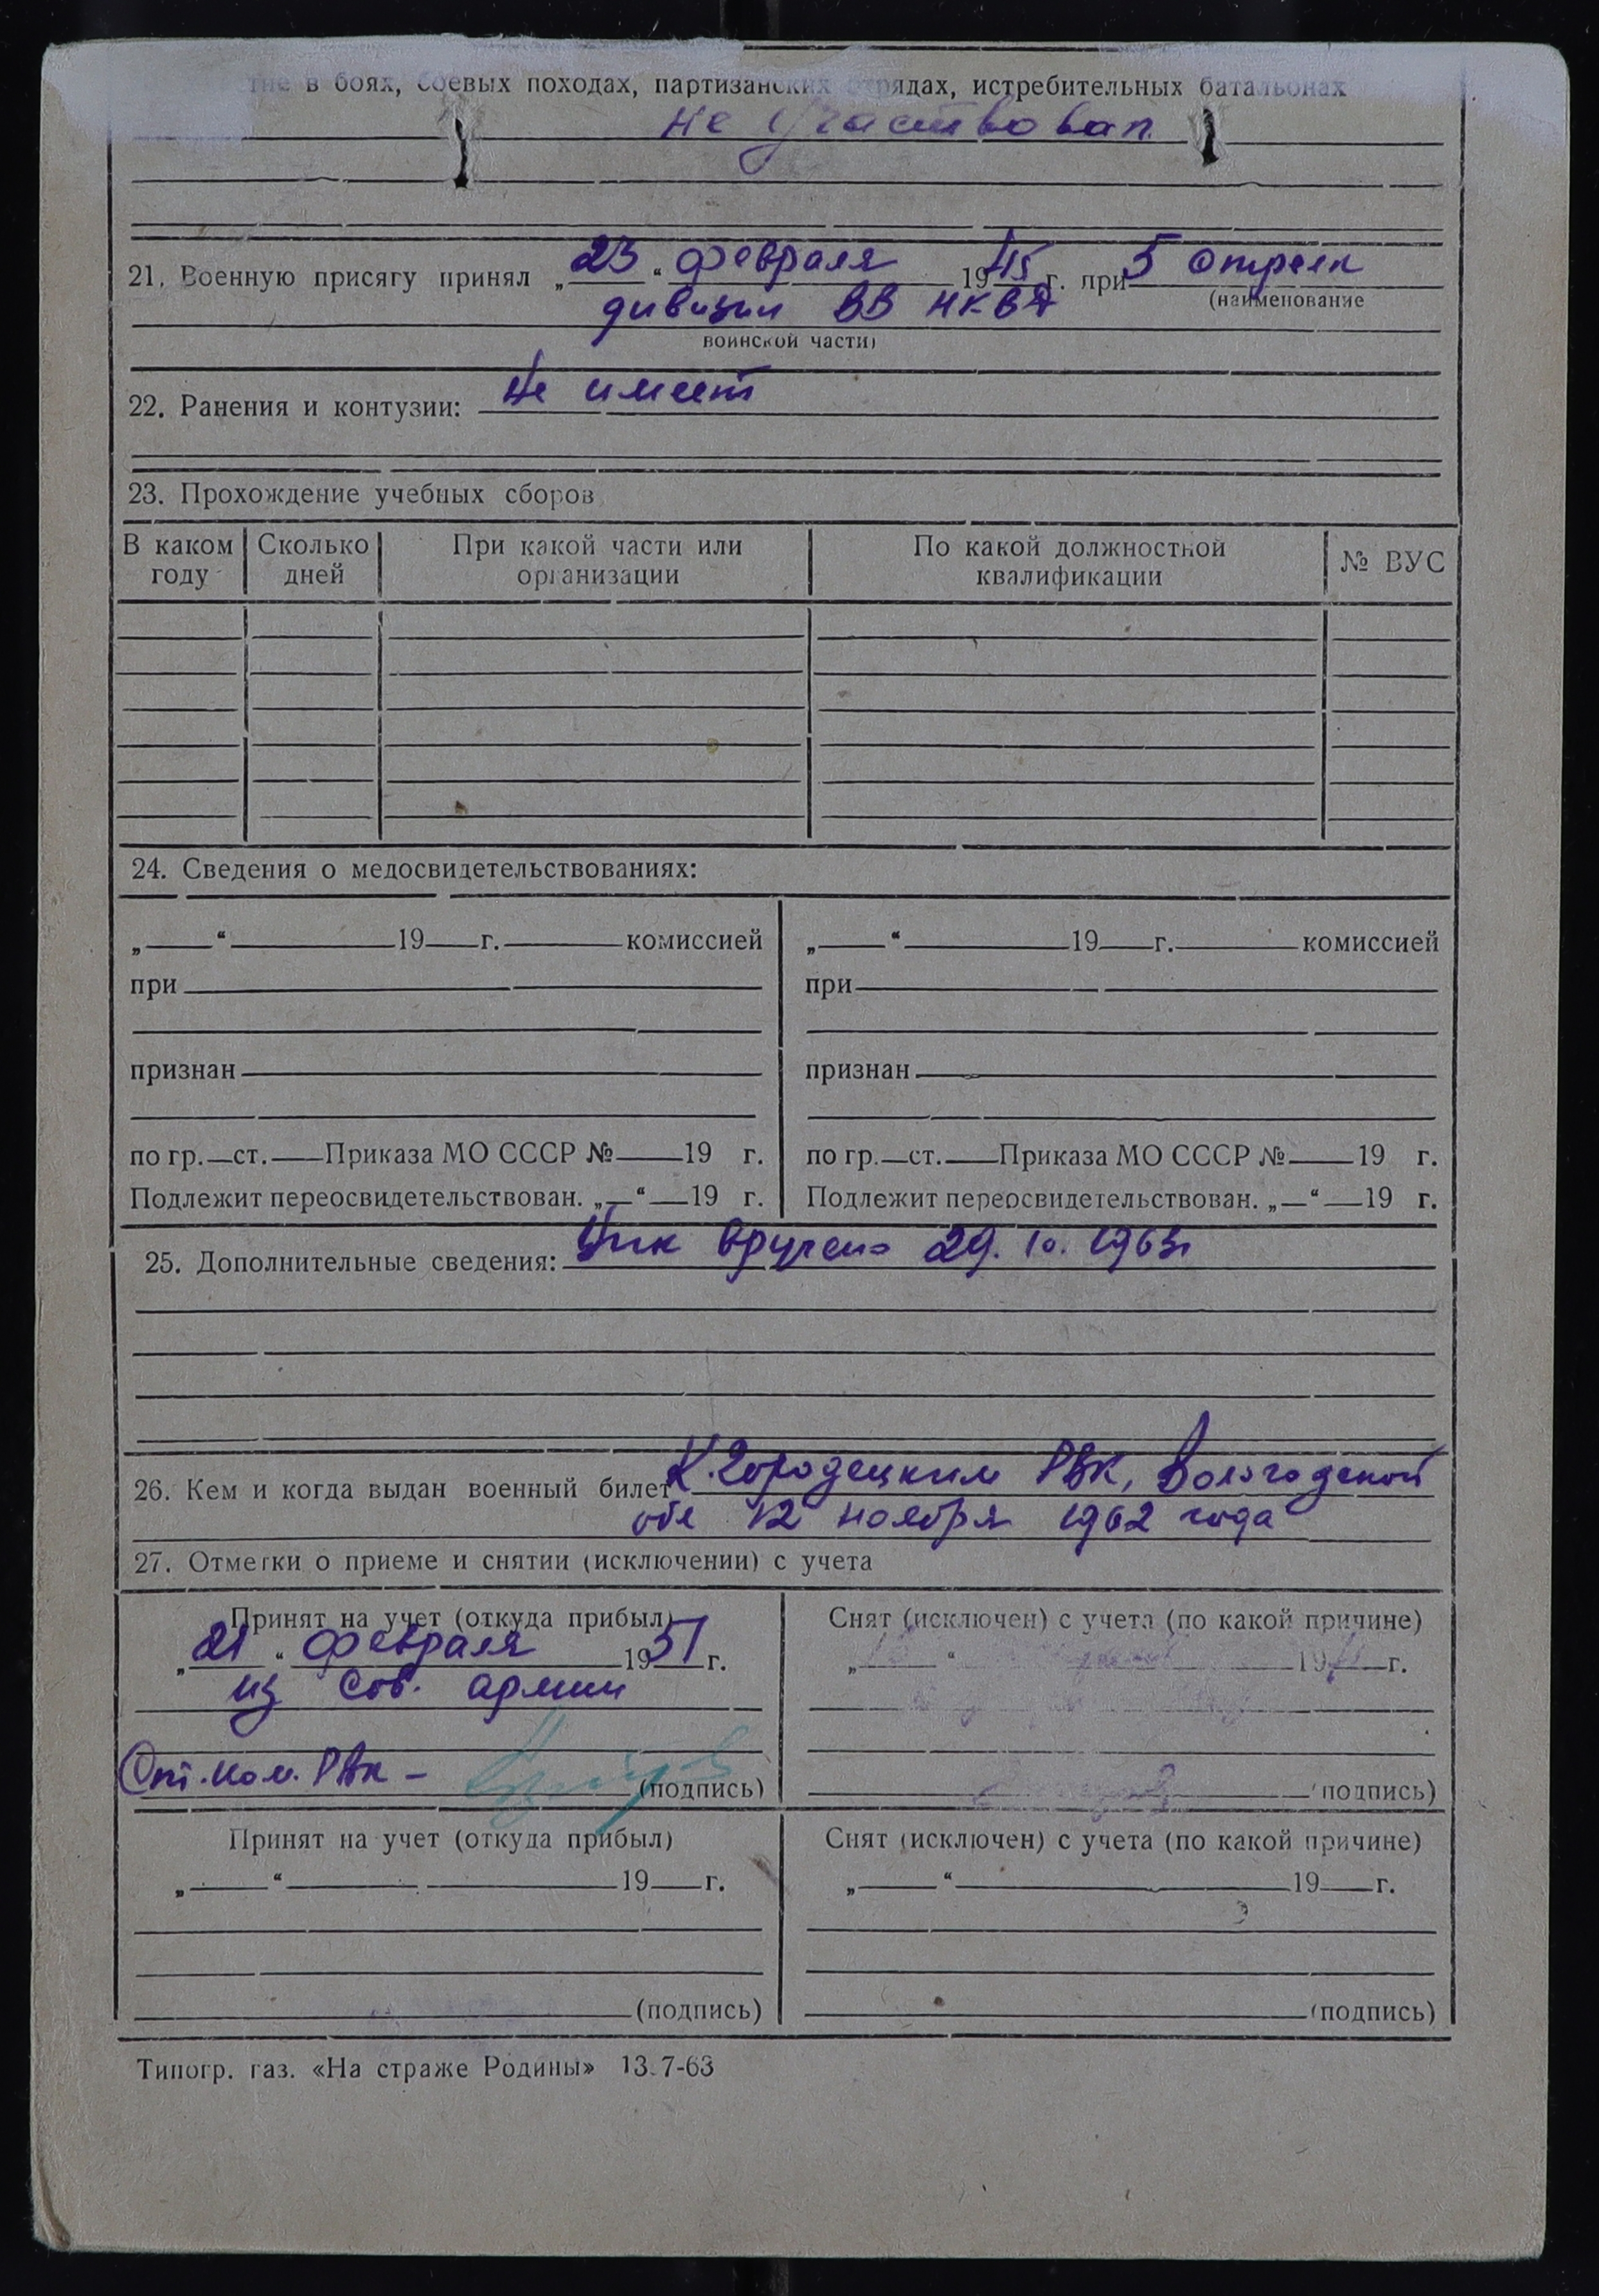 в боях, боевых походах, партизанских отрядах, истребительных батальонах
не участвовал
21. Военную присягу принял „23“ февраля 1945 г. при 5 стрелк
(наименование
дивизии ВВ НКВД
воинской части)
22. Ранения и контузии: Не имеет
23. Прохождение учебных сборов
В каком году Сколько дней При какой части или организации По какой должностной квалификации № ВУС
24. Сведения о медосвидетельствованиях:
„ “ 19 г. комиссией „ “ 19 г. комиссией
при при
признан признан
по гр. ст. Приказа МО СССР № 19 г. по гр. ст. Приказа МО СССР № 19 г.
Подлежит переосвидетельствован. „ “ 19 г. Подлежит переосвидетельствован. „ “ 19 г.
25. Дополнительные сведения: вручено 29. 10. 1963г
26. Кем и когда выдан военный билет К.Городецким РВК, Вологодской
обл 12 ноября 1962 года
27. Отметки о приеме и снятии (исключении) с учета
Принят на учет (откуда прибыл) Снят (исключен) с учета (по какой причине)
„21“ февраля 1951 г. „ “ 19 г.
из Сов. армии
РВК – (подпись) (подпись)
Принят на учет (откуда прибыл) Снят (исключен) с учета (по какой причине)
„ “ 19 г. „ “ 19 г.
(подпись) (подпись)
Типогр. газ. «На страже Родины» 13.7-63